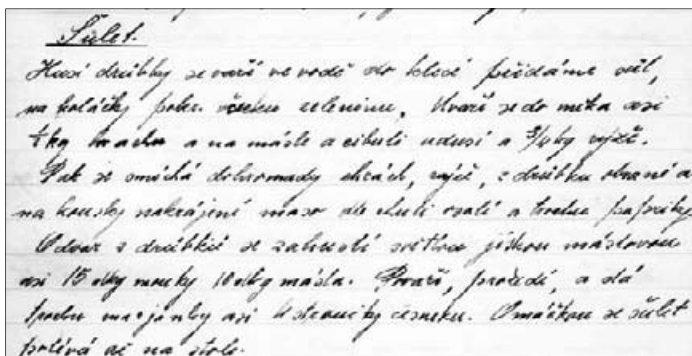 Šulet.
Husí drůbky se vaří ve vodě do které přidáme sůl,
na kolečky pokr. všecku zeleninu, Uvaří se do měka asi
1 kg hrachu a na másle a cibuli udusí a 3/4 kg rýže.
Pak se smíchá dohromady hrách, rýže, z drůbku obrané a
na kousky nakrájené maso dle chuti osolí a trochu papriky
Odvar z drůbků se zahustí světlou jíškou máslovou
asi 15 dkg mouky 10 dkg másla. Povaří, procedí, a dá
trochu marjánky asi stroužky česneku. Omáčkou se šulet
polévá až na stole.